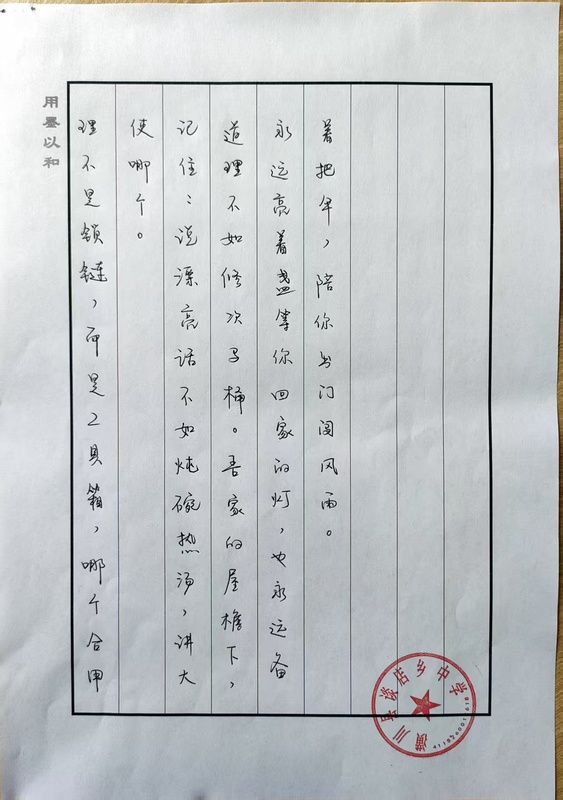 用墨以和
理不是锁链，而是工具箱，哪个合用
使哪个。
记住：说漂亮话不如炖碗热汤，讲大
道理不如修次马桶。吾家的屋檐下，
永远亮着盏等你回家的灯，也永远备
着把伞，陪你出门闯风雨。
潢川县谈店乡中学